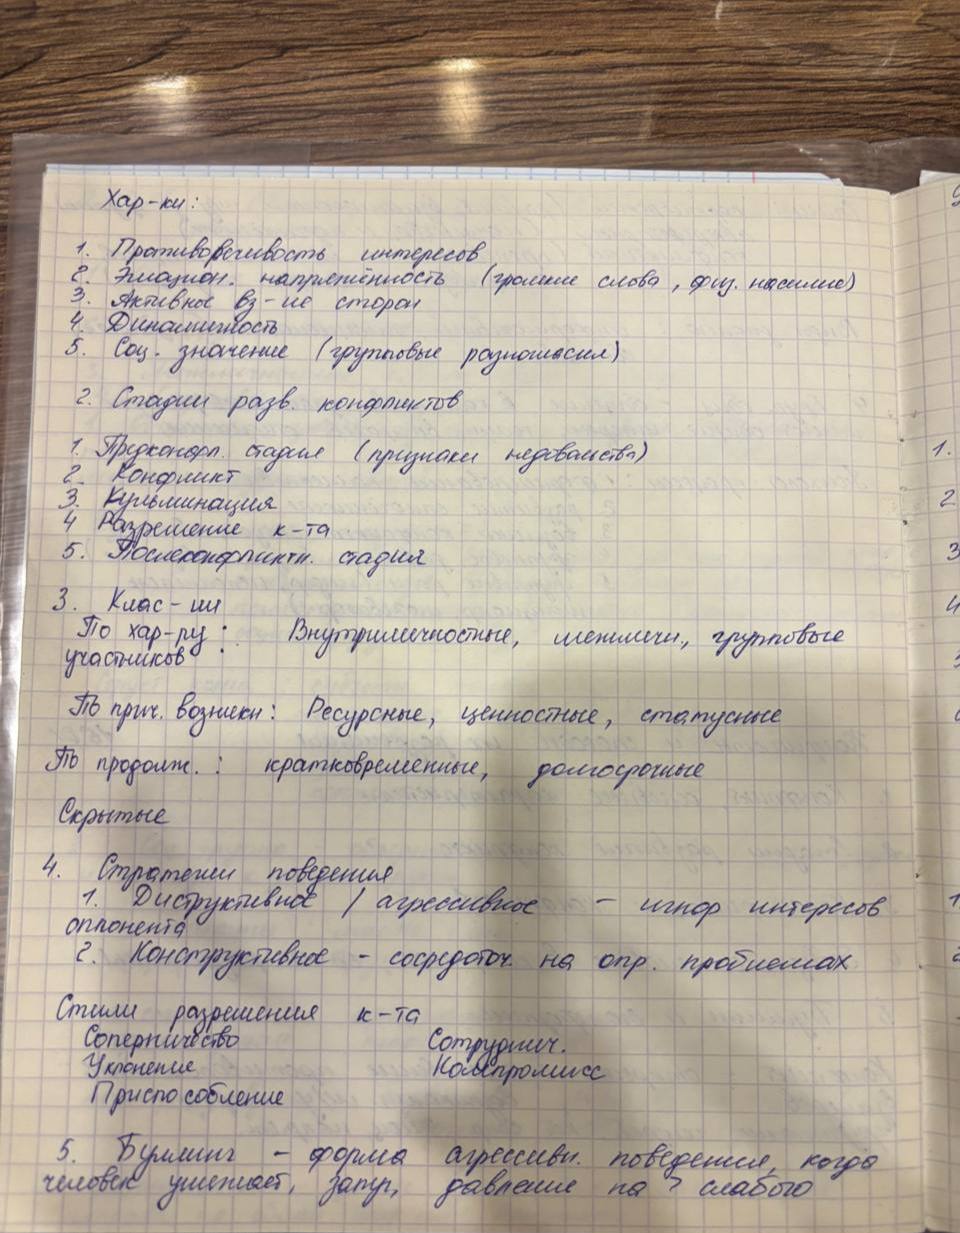 Хар-ки:
1. Противоречивость интересов
2. Эмацион. напряжённость (громкие слова, физ. насилие)
3. Активное вз-ие сторон
4. Динамичность
5. Соц. значение (групповые разногласия)
2. Стадии разв. конфликтов
1. Предконфл. стадия (признаки недовольства)
2. Конфликт
3. Кульминация
4 Разрешение к-та
5. Послеконфликтн. стадия
3. Клас-ии
По хар-ру : Внутриличностные, межличн., групповые
участников
По прич. возникн: Ресурсные, ценностные, статусные
По продолж. : кратковременные, долгосрочные
Скрытые
4. Стратегии поведения
1. Диструктивное / агрессивное – игнор интересов
оппонента
2. Конструктивное – сосредоточ. на опр. проблемах
Стили разрешения к-та
Соперничество Сотруднич.
Уклонение Компромисс
Приспособление
5. Буллинг – форма агрессивн. поведения, когда
человек унижает, запуг, давление на слабого
1.
2
3
4
1